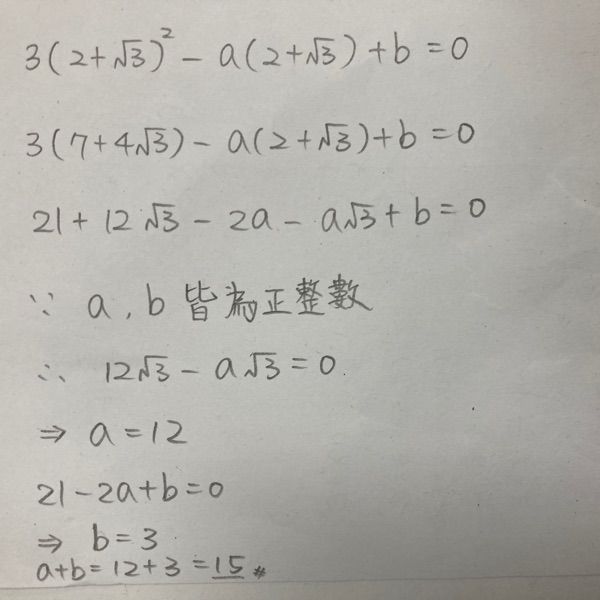 3(2+√3)² - a(2+√3)+b=0
3(7+4√3)- a(2+√3)+b=0
21+12√3-2a-a√3+b=0
∵ a,b 皆為正整數
∴ 12√3-a√3=0.
⇒ a=12
21-2a+b=0
⇒ b=3
a+b=12+3=15 #